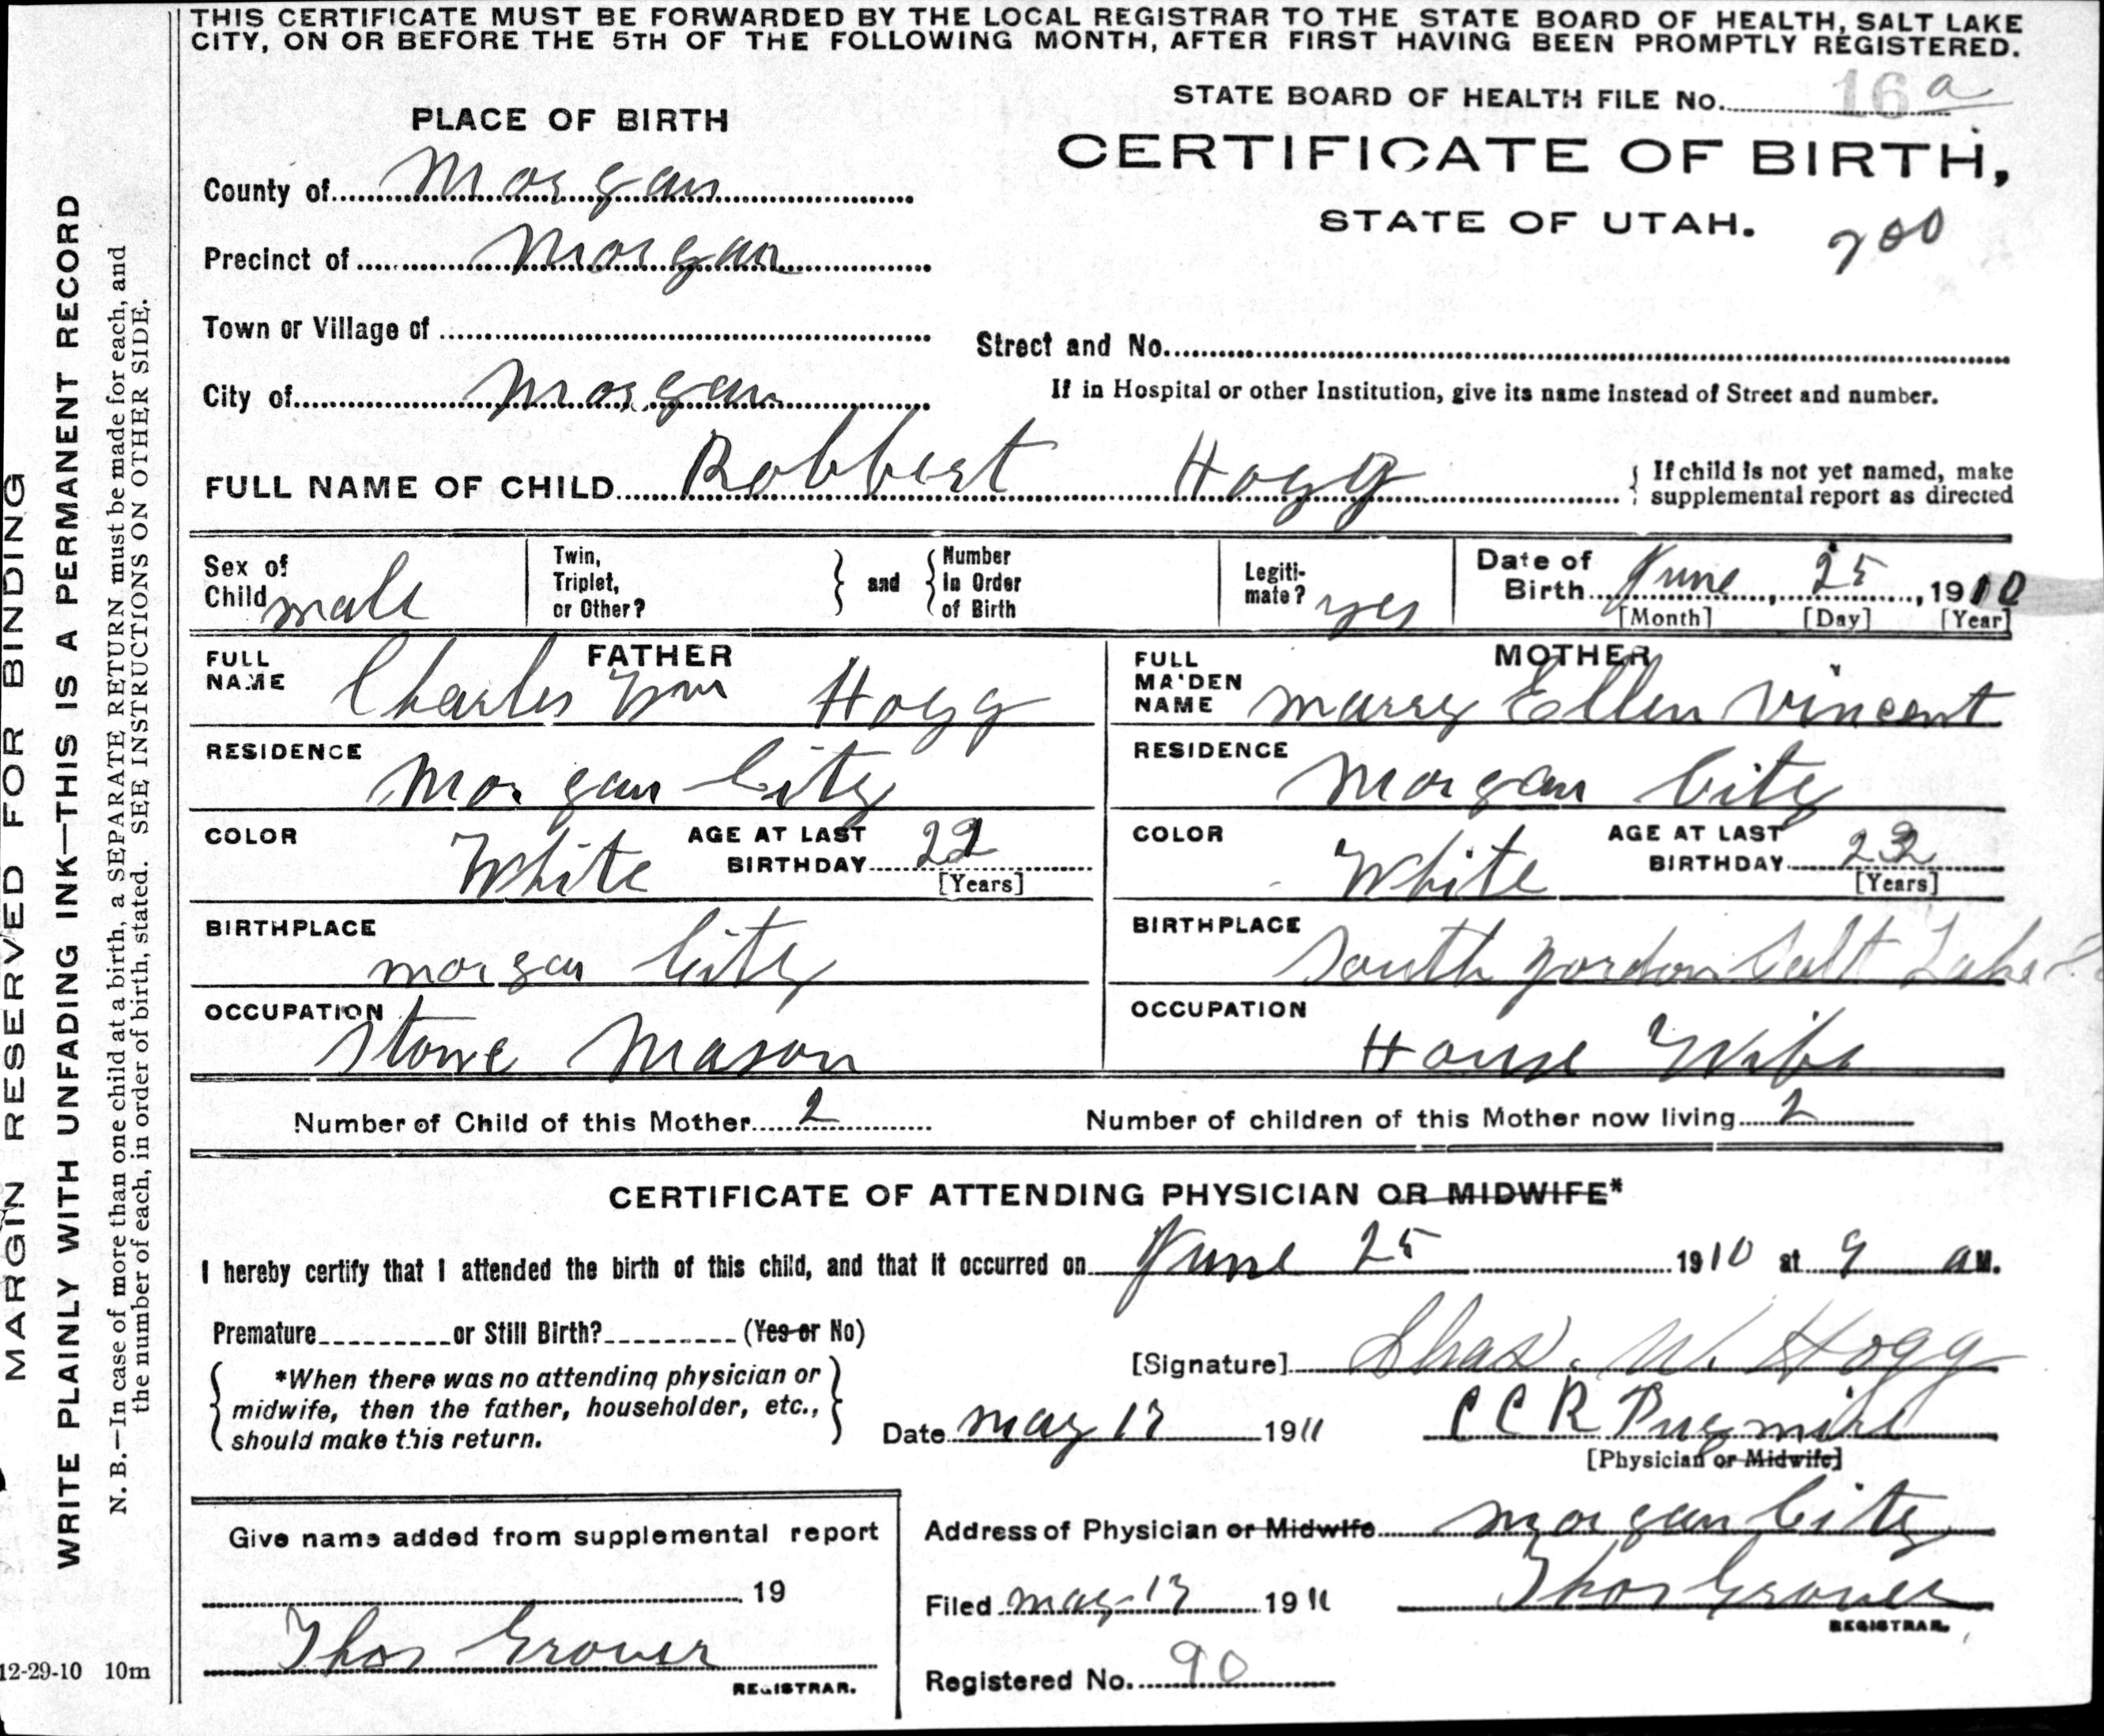 THIS CERTIFICATE MUST BE FORWARDED BY THE LOCAL REGISTRAR TO THE STATE BOARD OF HEALTH, SALT LAKE
CITY, ON OR BEFORE THE 5TH OF THE FOLLOWING MONTH, AFTER FIRST HAVING BEEN PROMPTLY REGISTERED.
STATE BOARD OF HEALTH FILE No. 16 a
PLACE OF BIRTH
CERTIFICATE OF BIRTH,
STATE OF UTAH.
County of Morgan
Precinct of Morgan
Town or Village of
Street and No.
City of Morgan
If in Hospital or other Institution, give its name instead of Street and number.
FULL NAME OF CHILD Robbert Hogg
If child is not yet named, make
supplemental report as directed
Sex of
Child male
Twin,
Triplet,
or Other?
and
Number
in Order
of Birth
Legiti-
mate? yes
Date of
Birth June 25, 1910
[Month] [Day] [Year]
FATHER
FULL
NAME Charles Wm Hogg
RESIDENCE
Morgan City
COLOR White
AGE AT LAST
BIRTHDAY 22
[Years]
BIRTHPLACE
morgan City
OCCUPATION
Stone Mason
MOTHER
FULL
MAIDEN
NAME Marry Ellen Vincent
RESIDENCE
Morgan City
COLOR White
AGE AT LAST
BIRTHDAY
[Years]
BIRTHPLACE
South Jordon Salt Lake
OCCUPATION
House Wife
Number of Child of this Mother 2
Number of children of this Mother now living 2
CERTIFICATE OF ATTENDING PHYSICIAN OR MIDWIFE*
I hereby certify that I attended the birth of this child, and that it occurred on June 25 1910 at 9 a M.
Premature or Still Birth? (Yes or No)
*When there was no attending physician or
midwife, then the father, householder, etc.,
should make this return.
[Signature] Chas. W. Hogg
Date may 1911
C C R Pugmire
[Physician or Midwife]
Give name added from supplemental report
19
Thos Grover
REGISTRAR.
Address of Physician or Midwife morgan City
Filed may 1911
Thos Grover
REGISTRAR.
Registered No. 90
MARGIN RESERVED FOR BINDING
WRITE PLAINLY WITH UNFADING INK—THIS IS A PERMANENT RECORD
N. B.—In case of more than one child at a birth, a SEPARATE RETURN must be made for each, and
the number of each, in order of birth, stated. SEE INSTRUCTIONS ON OTHER SIDE.
12-29-10 10m